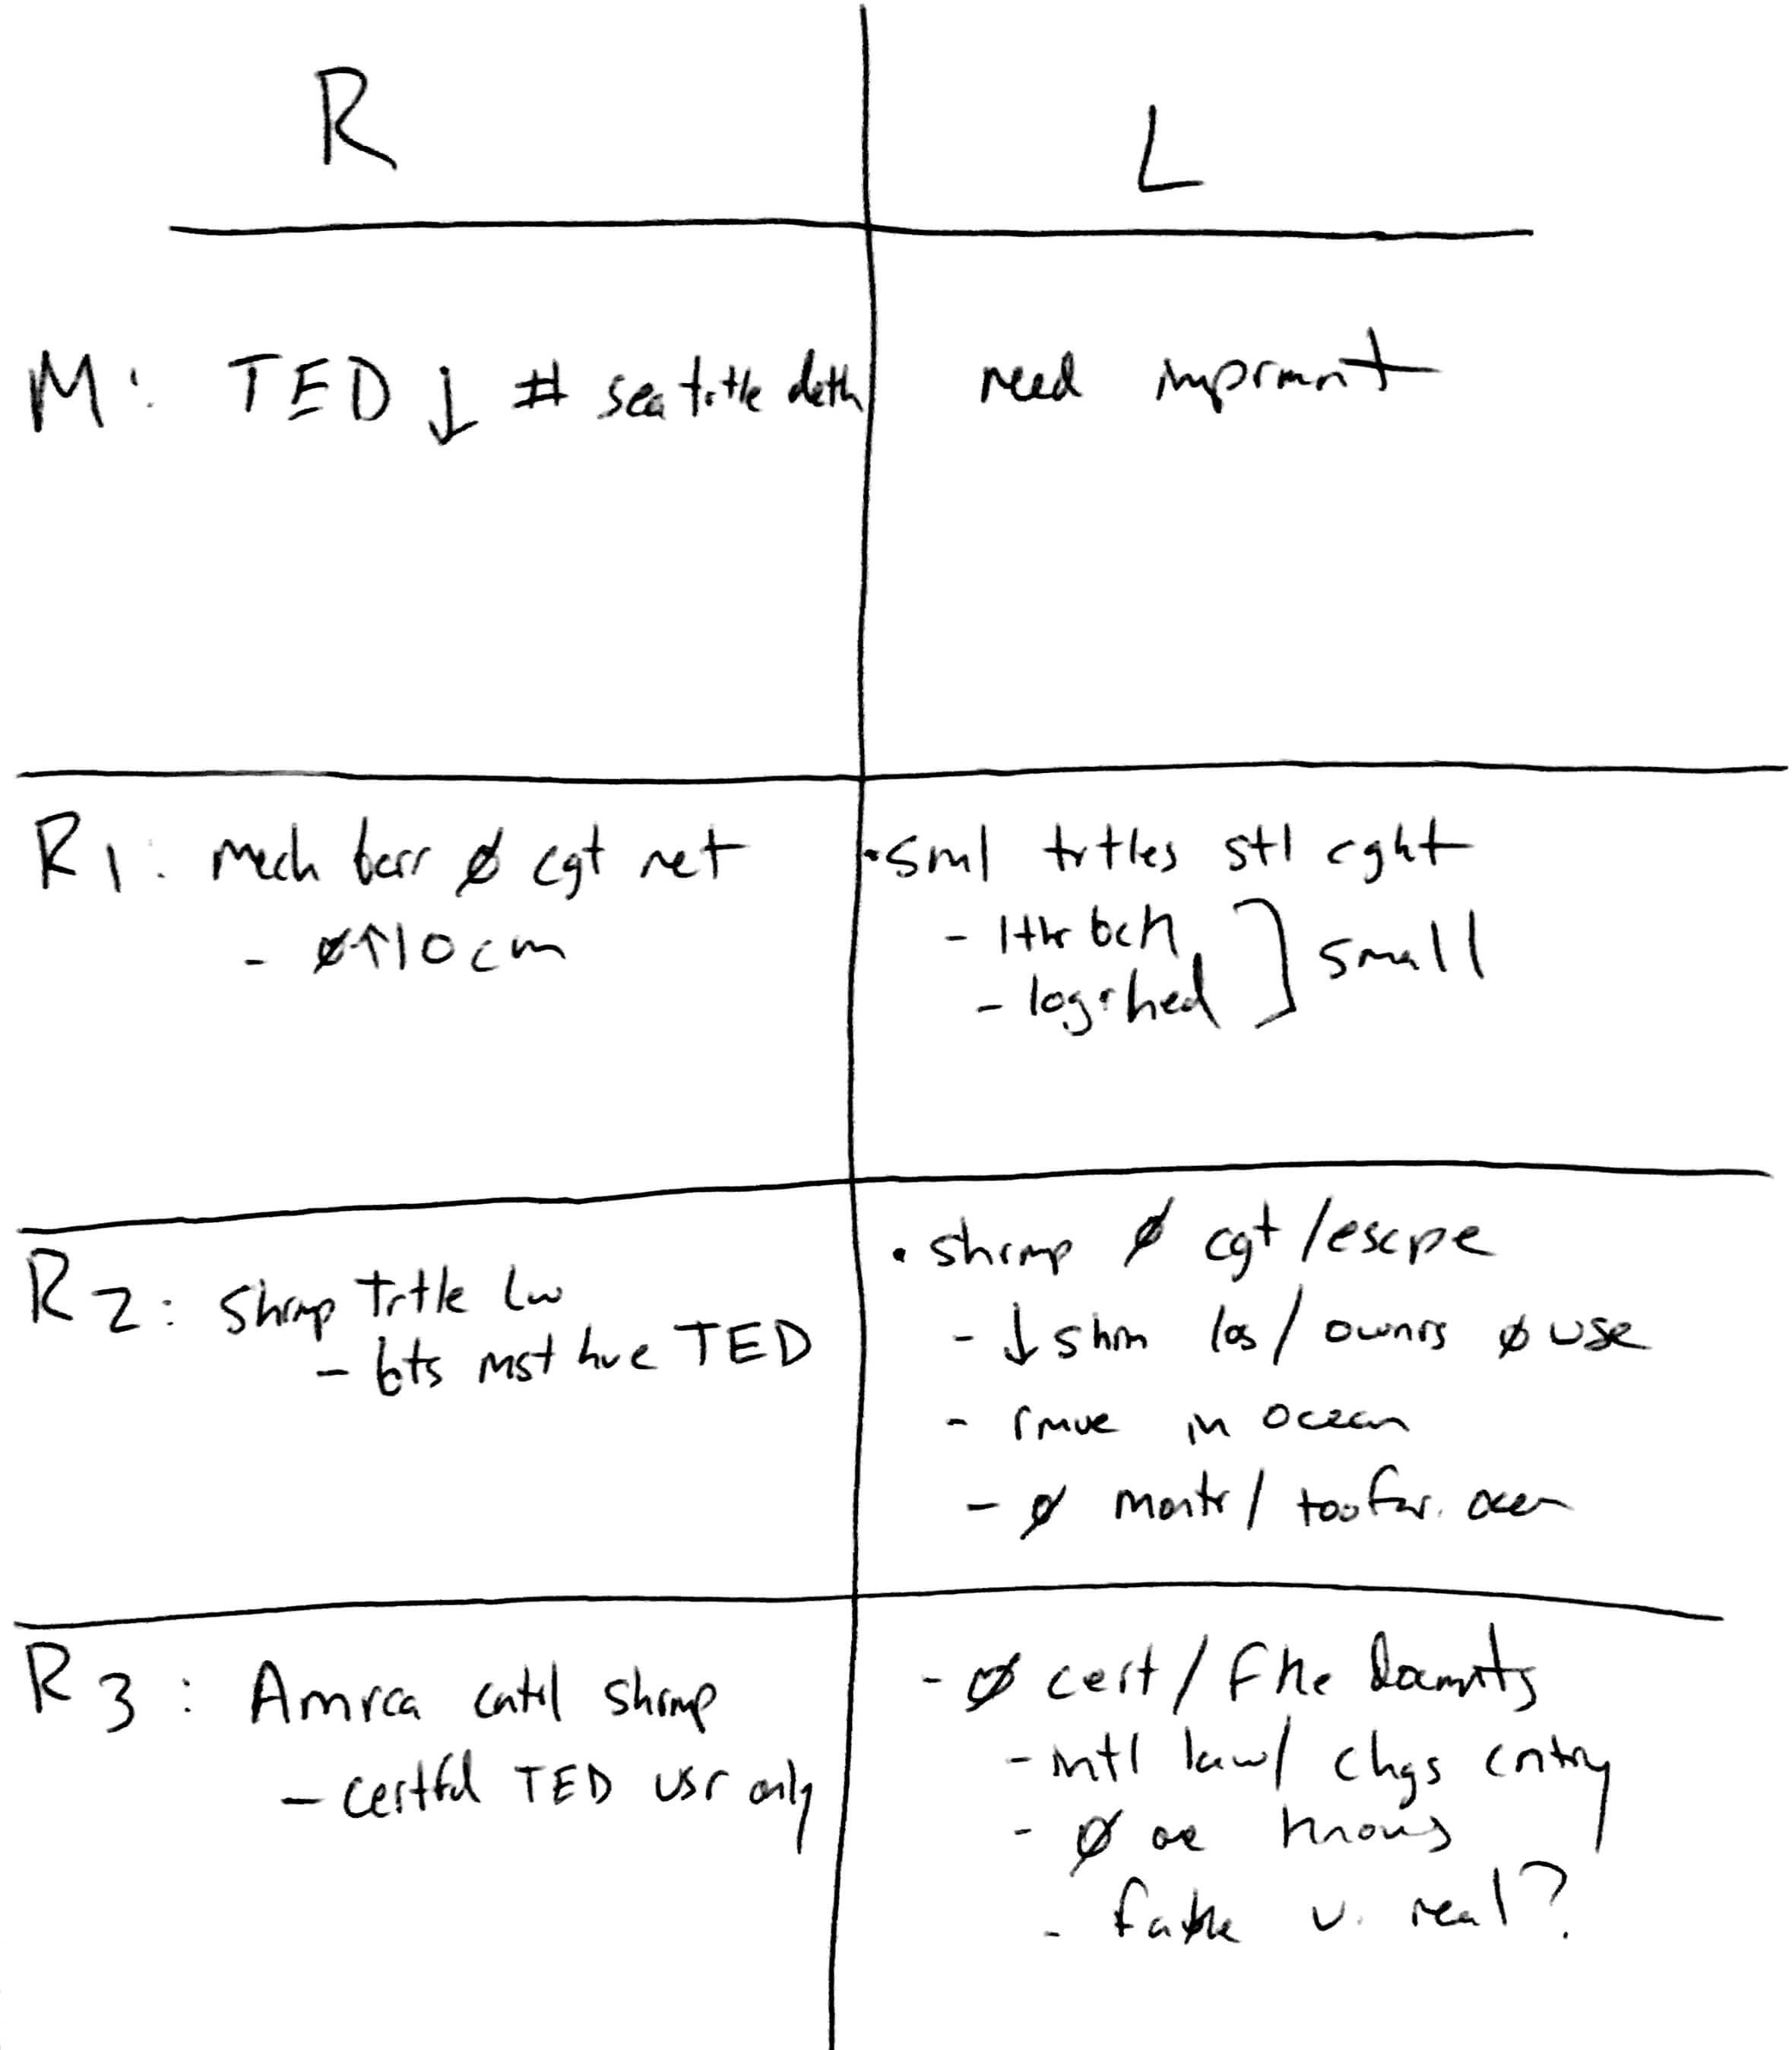 R
L
M: TED ↓ # sea trtle deth
need imprmnt
R1: mech barr ∅ cgt net
- ∅↑10cm
• sml trtles stl cght
- lthr bck
- logrhed ] small
R2: Shrmp Trtle Lw
- bts mst hve TED
• shrmp ∅ cgt/escpe
- ↓ shrm los/ ownrs ∅ use
- rmve in ocean
- ∅ montr/ too far. ocen
R3: Amrca cntrl shrmp
- certfd TED usr only
- ∅ cert/ Fke Docmnts
- intl law/ chgs cntry
- ∅ one knows
- fake v. real?